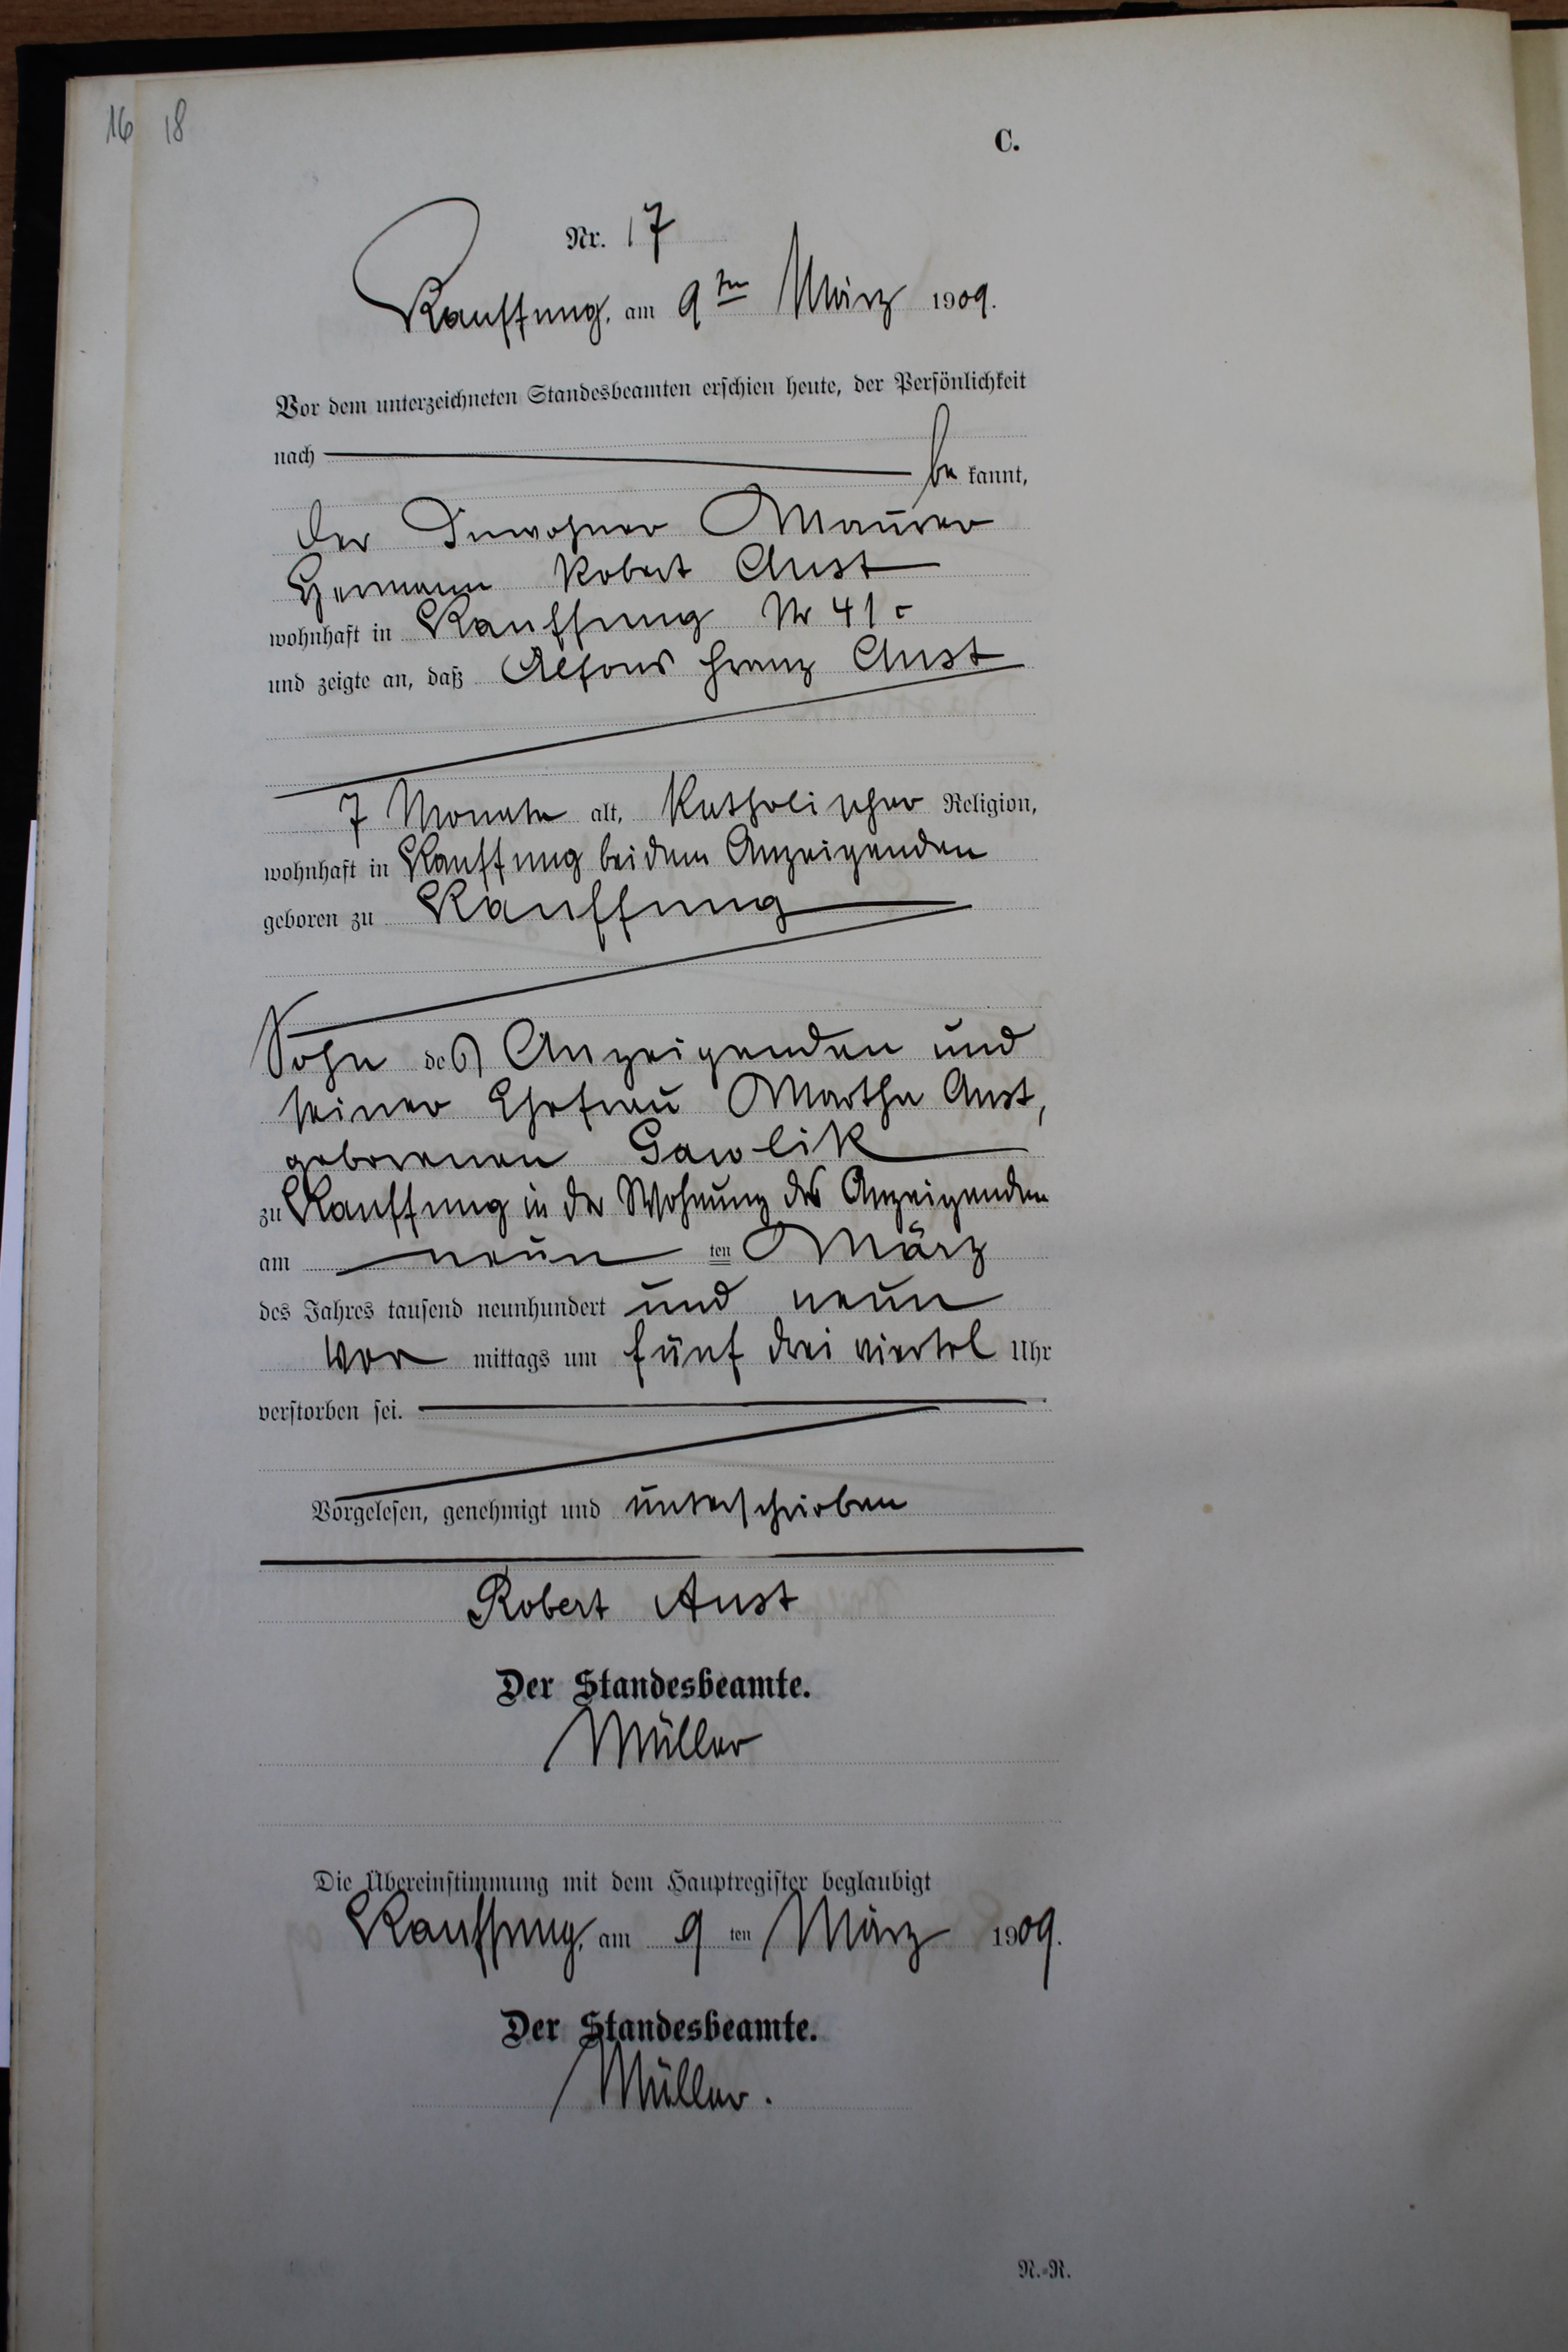 16 18
C.
Nr. 17
Kauffung, am 9ten März 1909.
Vor dem unterzeichneten Standesbeamten erschien heute, der Persönlichkeit
nach be kannt,
der Inwohner Maurer
Hermann Robert Aust
wohnhaft in Kauffung Nr 41c
und zeigte an, daß Alfons Franz Aust
7 Monate alt, Katholischer Religion,
wohnhaft in Kauffung bei dem Anzeigenden
geboren zu Kauffung
Sohn des Anzeigenden und
seiner Ehefrau Martha Aust,
geborenen Gawlik
zu Kauffung in der Wohnung des Anzeigenden
am neun ten März
des Jahres tausend neunhundert und neun
vor mittags um fünf drei viertel Uhr
verstorben sei.
Vorgelesen, genehmigt und unterschrieben
Robert Aust
Der Standesbeamte.
Müller
Die Übereinstimmung mit dem Hauptregister beglaubigt
Kauffung, am 9 ten März 1909.
Der Standesbeamte.
Müller.
N.-R.